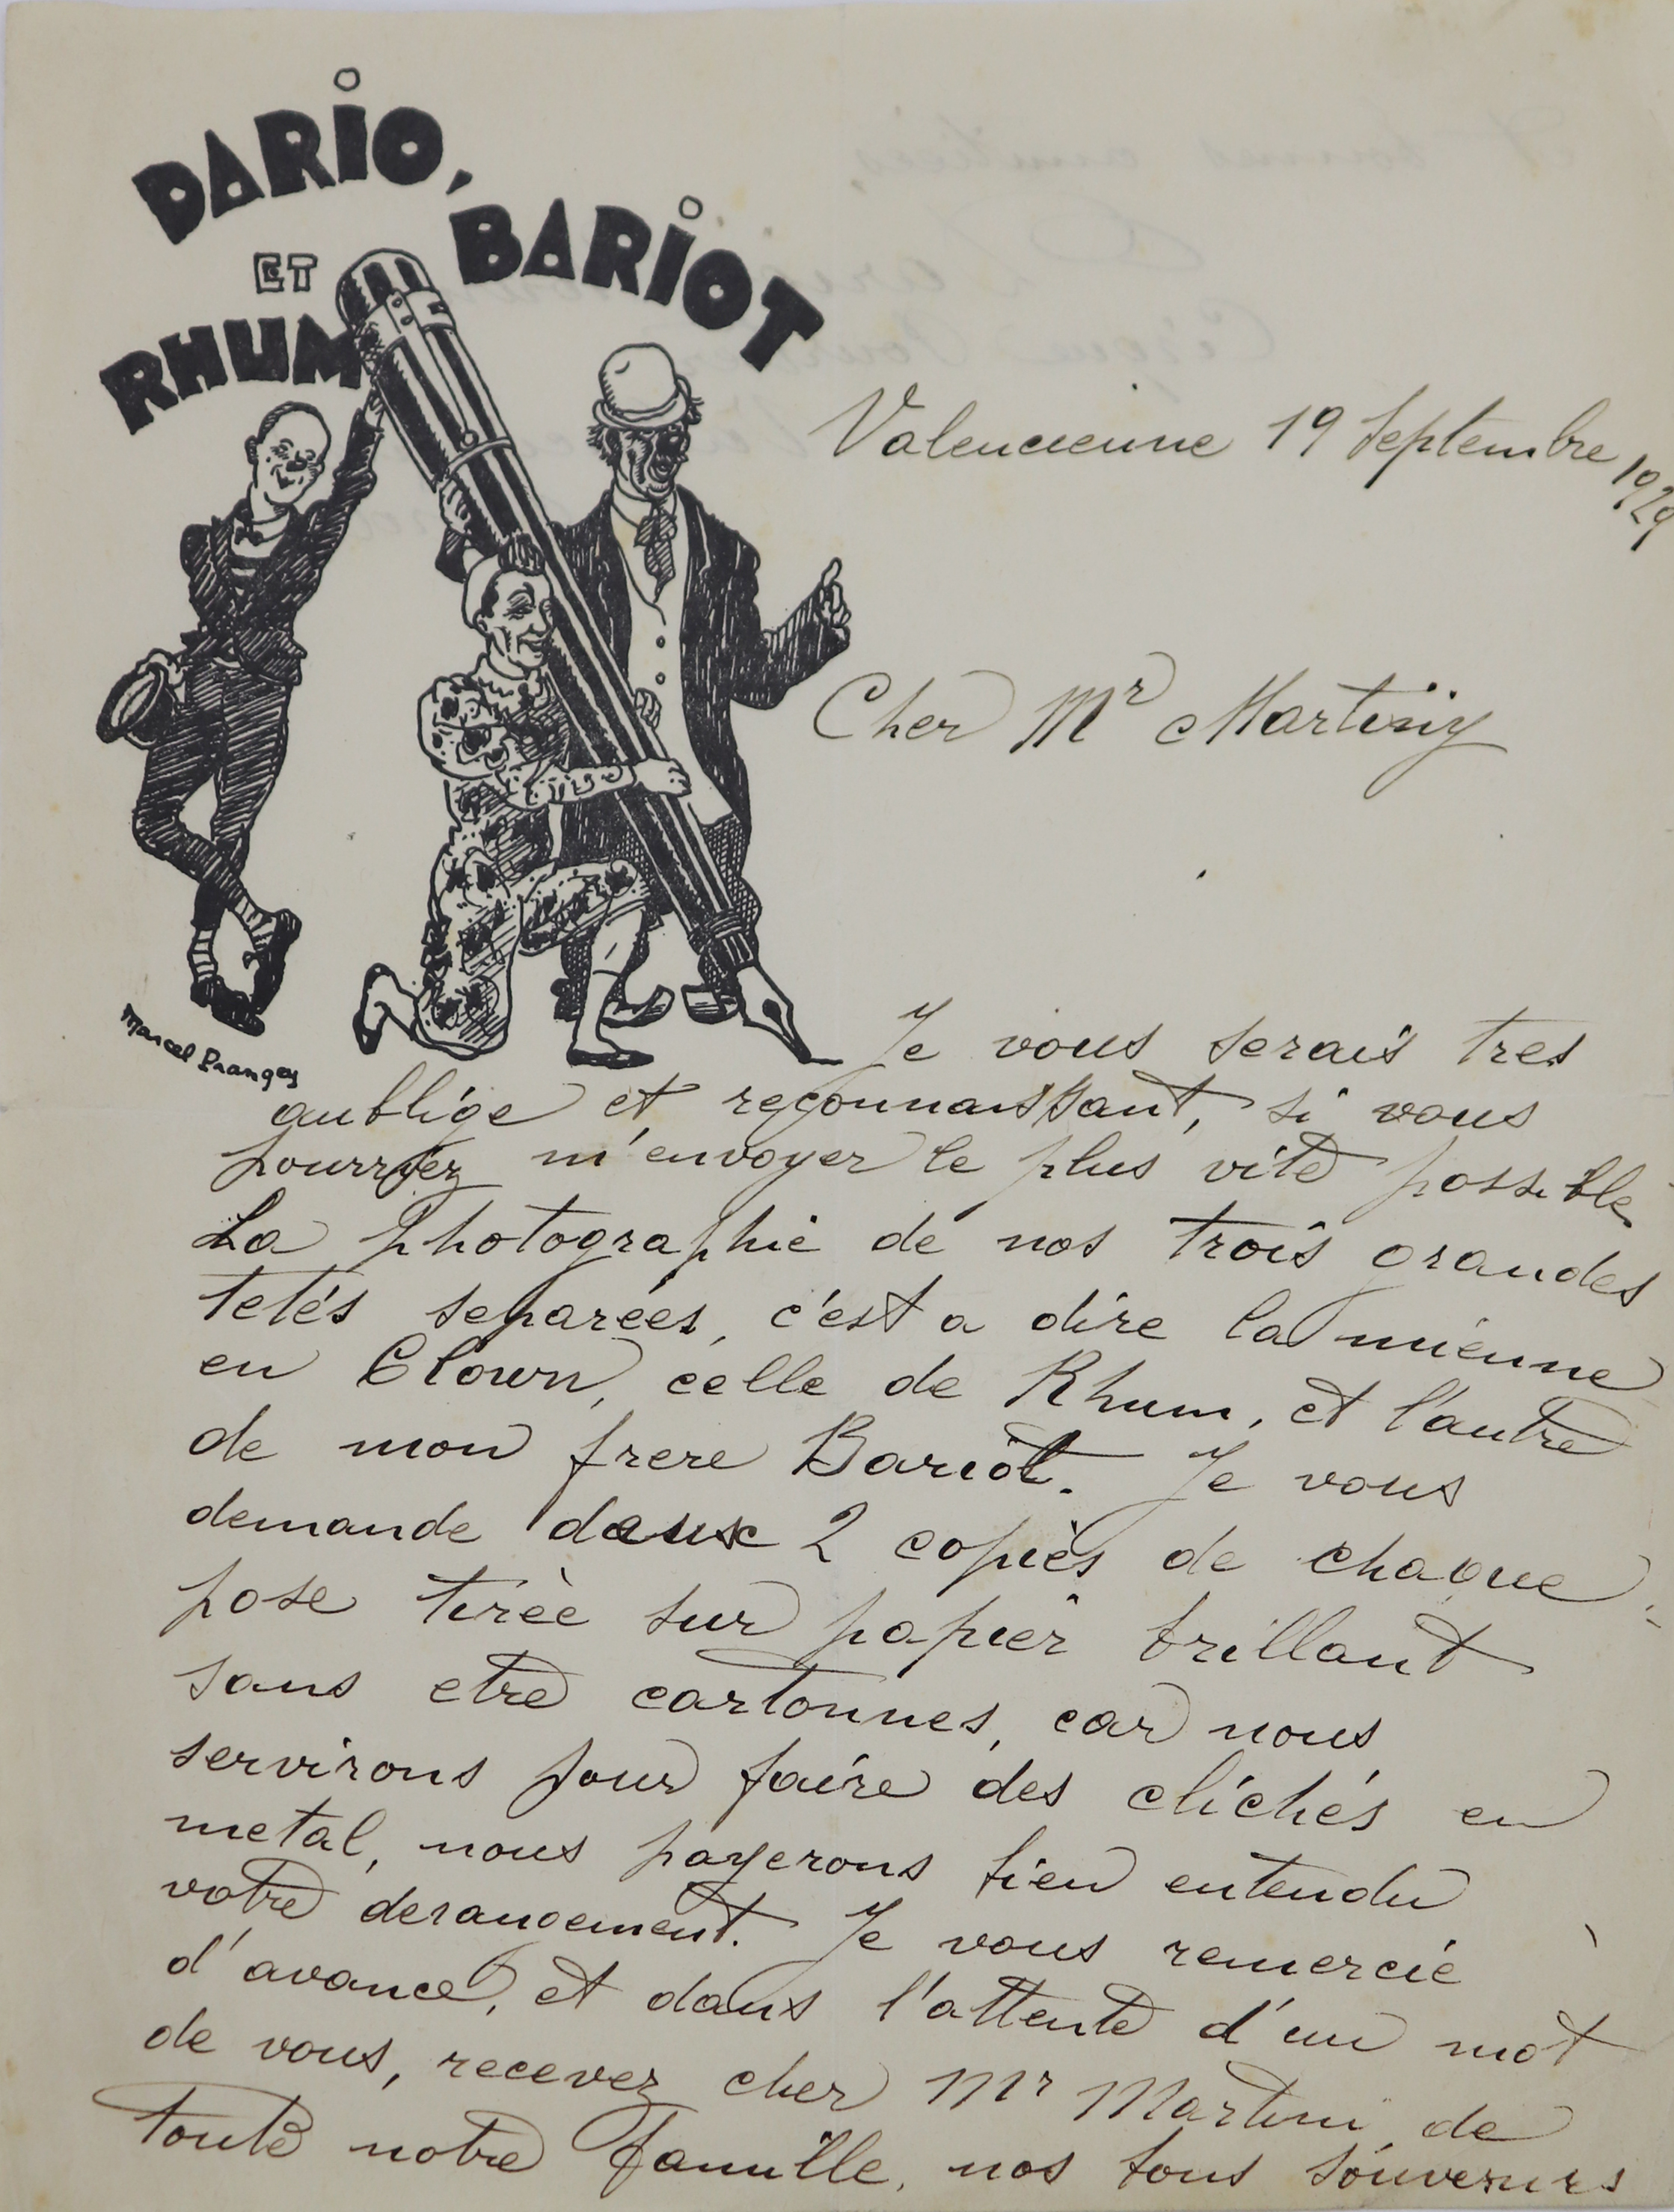 DARIO,
BARIOT
ET
RHUM
Marcel Prangey
Valencienne 19 Septembre 1929
Cher Mr Martiny
Je vous serais tres
aublige et reçonnaissant, si vous
pourriez m'envoyer le plus vite possible
La photographie de nos trois grandes
tetés separées, c'est a dire la mienne
en Clown, celle de Rhum, et l'autre
de mon frere Bariot. Je vous
demande deux 2 copies de chaque
pose tirèe sur papier brillant
sans etre cartonnes, car nous
servirons pour faire des clichés en
metal, nous payerons bien entendu
votre derangement. Je vous remercie
d'avance, et dans l'attente d'un mot
de vous, recevez cher Mr Martini de
toute notre famille, nos bons souvenirs